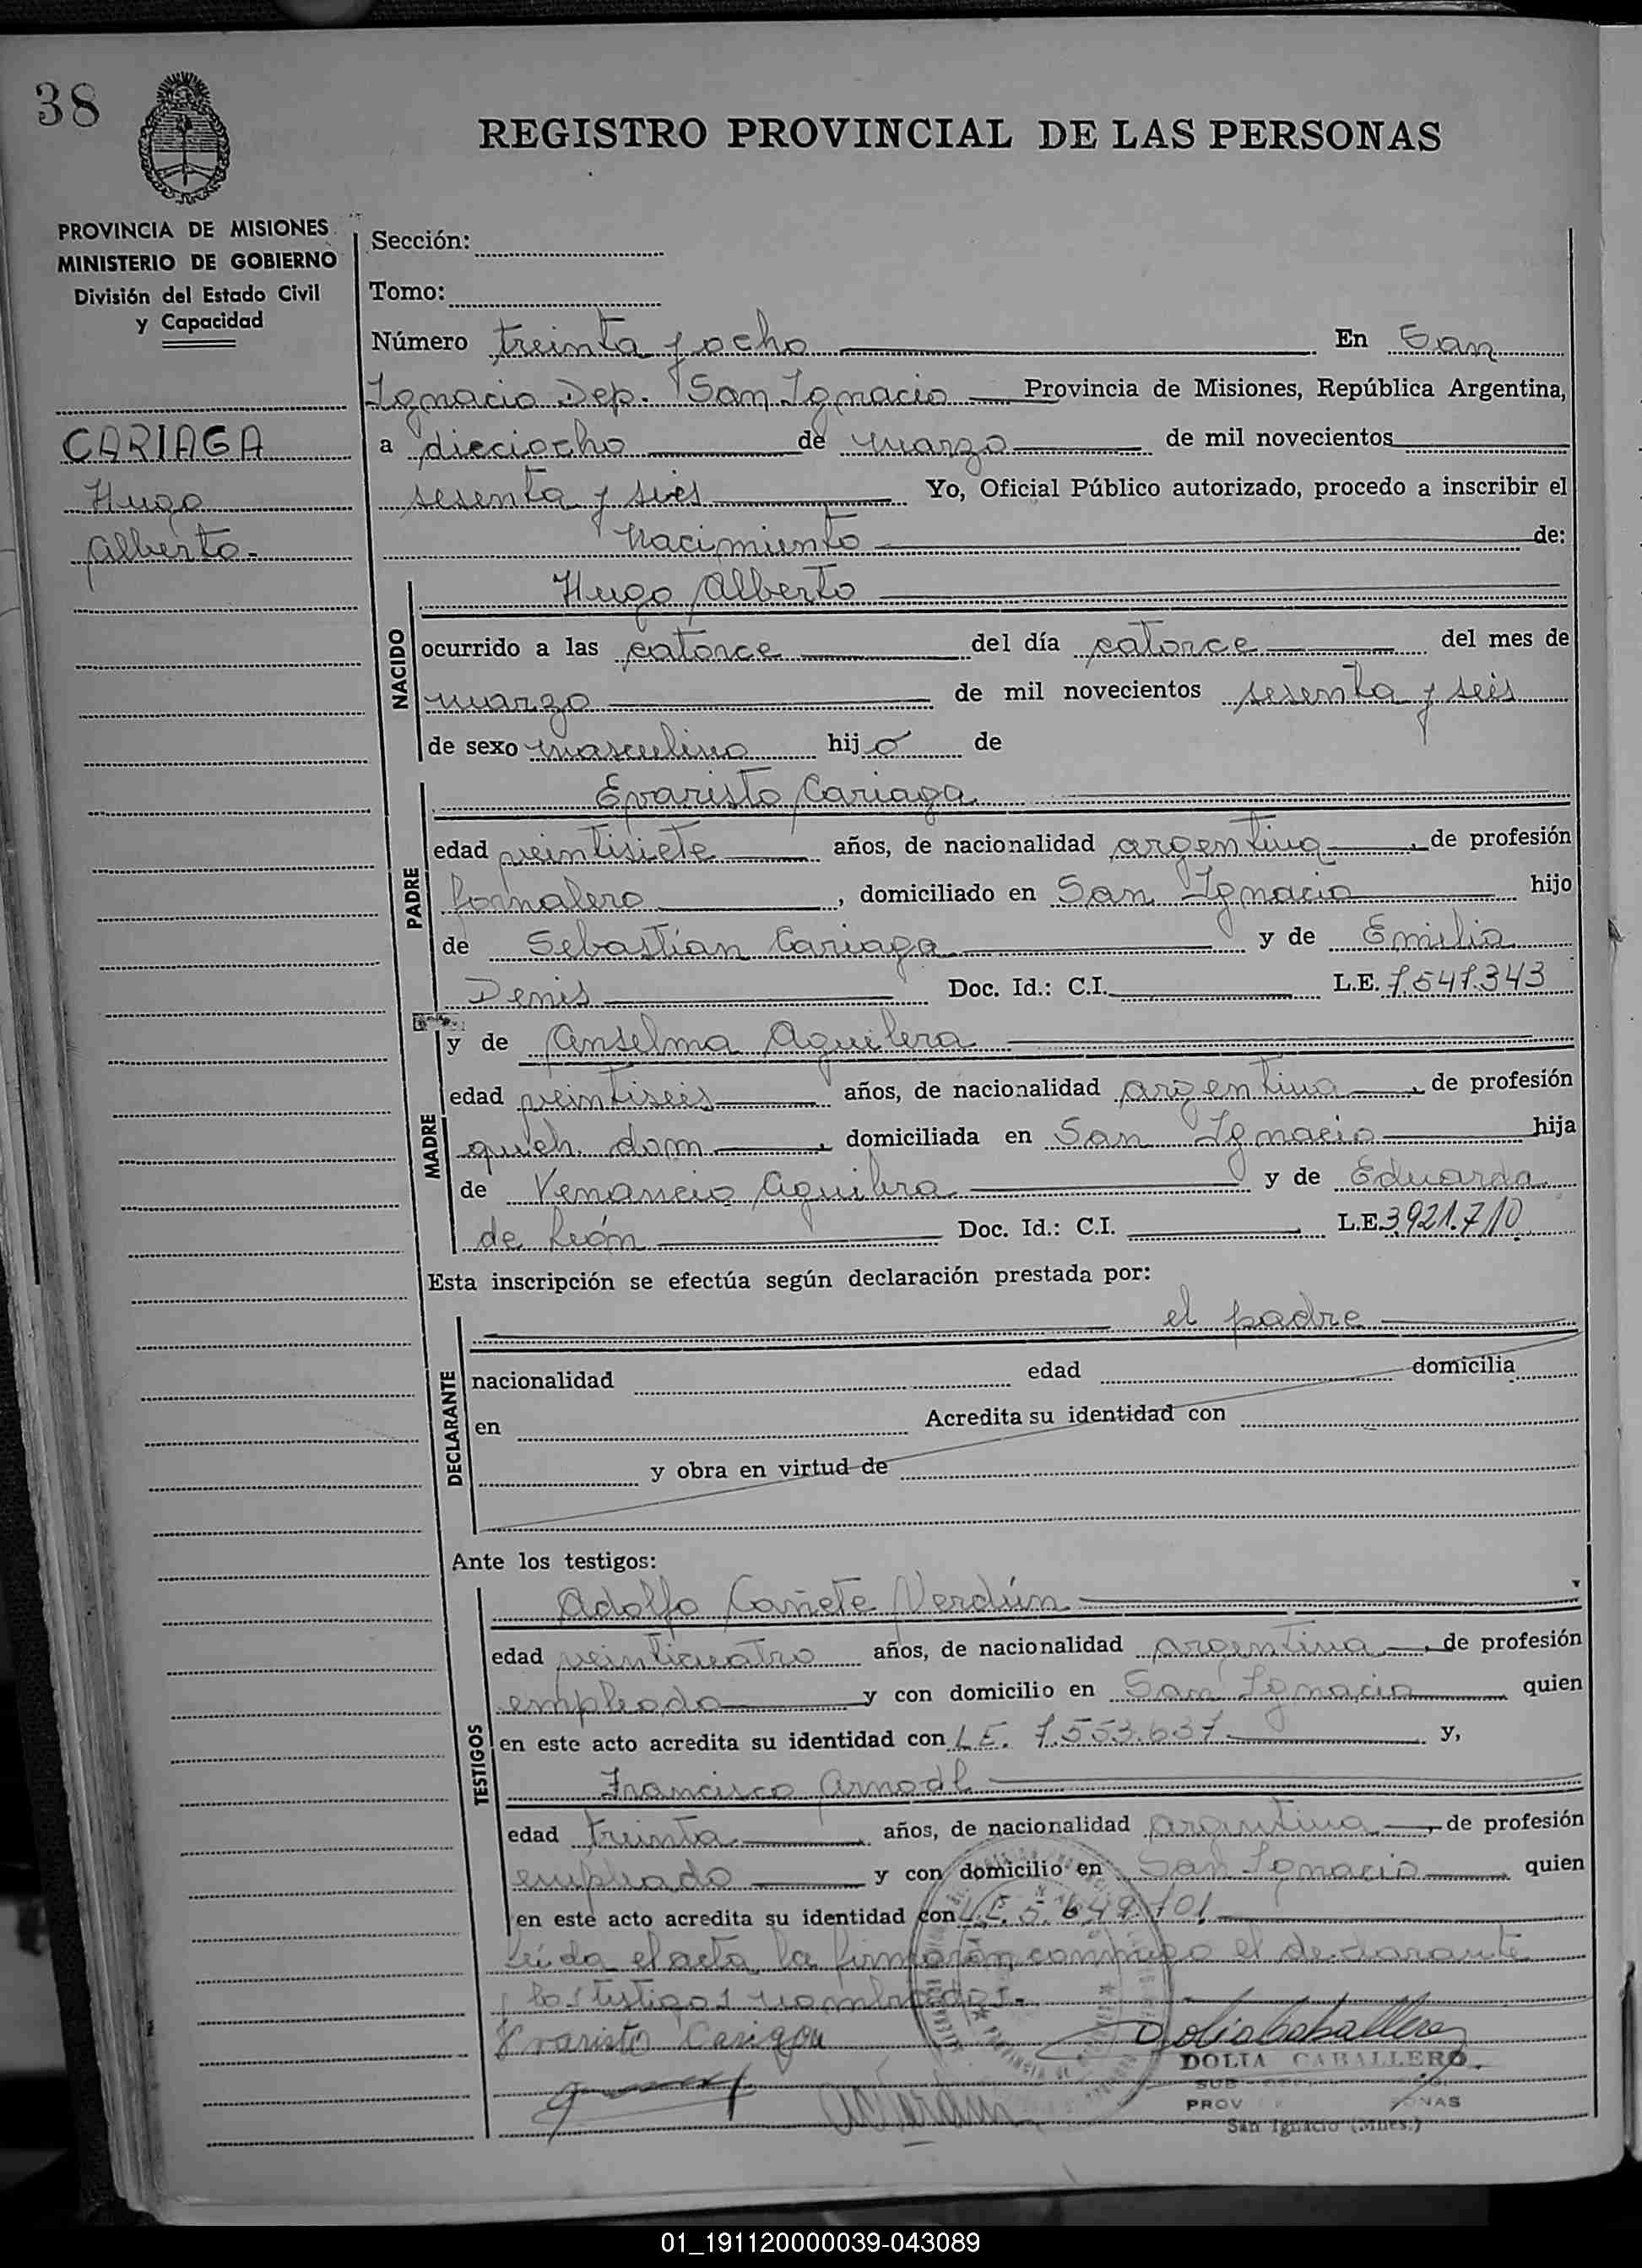 38
REGISTRO PROVINCIAL DE LAS PERSONAS
PROVINCIA DE MISIONES
MINISTERIO DE GOBIERNO
División del Estado Civil
y Capacidad
CARIAGA
Hugo
Alberto.-
Sección:
Tomo:
Número treinta y ocho En San
Ignacio Dep. San Ignacio Provincia de Misiones, República Argentina,
a dieciocho de marzo de mil novecientos
sesenta y seis Yo, Oficial Público autorizado, procedo a inscribir el
nacimiento de:
NACIDO
Hugo Alberto
ocurrido a las catorce del día catorce del mes de
marzo de mil novecientos sesenta y seis
de sexo masculino hijo de
PADRE
Evaristo Cariaga
edad veintisiete años, de nacionalidad argentina, de profesión
jornalero, domiciliado en San Ignacio hijo
de Sebastian Cariaga y de Emilia
Denis Doc. Id.: C.I. L.E. 7.547.343
MADRE
y de Anselma Aguilera
edad veintiseis años, de nacionalidad argentina, de profesión
queh. dom, domiciliada en San Ignacio hija
de Venancio Aguilera y de Eduarda
de León Doc. Id.: C.I. L.E. 3.921.710
Esta inscripción se efectúa según declaración prestada por:
DECLARANTE
el padre
nacionalidad edad domicilia
en Acredita su identidad con
y obra en virtud de
Ante los testigos:
TESTIGOS
Adolfo Cañete Verdún
edad veinticuatro años, de nacionalidad argentina, de profesión
empleado y con domicilio en San Ignacio quien
en este acto acredita su identidad con L.E. 7.553.637 y,
Francisco
edad treinta años, de nacionalidad argentina, de profesión
empleado y con domicilio en San Ignacio quien
en este acto acredita su identidad con L.E. 5.649.701
Leída el acta, la firmaron conmigo el declarante
y los testigos nombrados.-
Evaristo Cariaga
DOLIA CABALLERO
SUB
PROV NAS
San Ignacio (Mnes.)
01_191120000039-043089